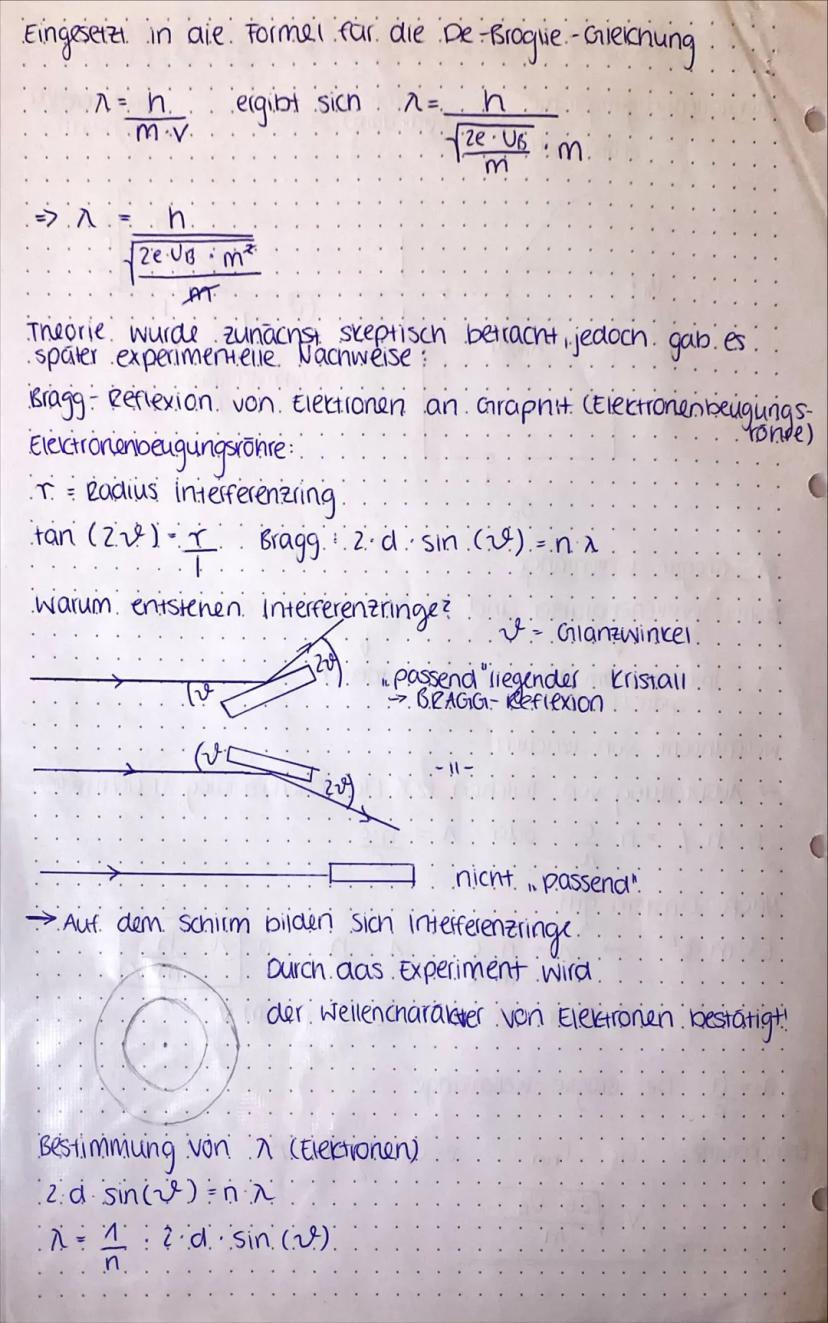 Eingesetzt in die Formel für die De-Broglie-Gleichung
λ = h / m · v ergibt sich λ = h / √(2e · U_B / m) · m
=> λ = h / √(2e · U_B · m² / m)
Theorie wurde zunächst skeptisch betracht, jedoch gab es
später experimentelle Nachweise:
Bragg-Reflexion von Elektronen an Graphit (Elektronenbeugungs-
röhre)
Elektronenbeugungsröhre:
r = Radius Interferenzring
tan (2ϑ) = r / l Bragg: 2 · d · sin (ϑ) = n λ
Warum entstehen Interferenzringe?
ϑ = Glanzwinkel
ϑ 2ϑ „passend" liegender Kristall
→ BRAGG-Reflexion
ϑ 2ϑ -||-
nicht „passend"
→ Auf dem Schirm bilden sich Interferenzringe
Durch das Experiment wird
der Wellencharakter von Elektronen bestätigt!
Bestimmung von λ (Elektronen)
2 · d · sin(ϑ) = n · λ
λ = 1 / n · 2 · d · sin (ϑ)